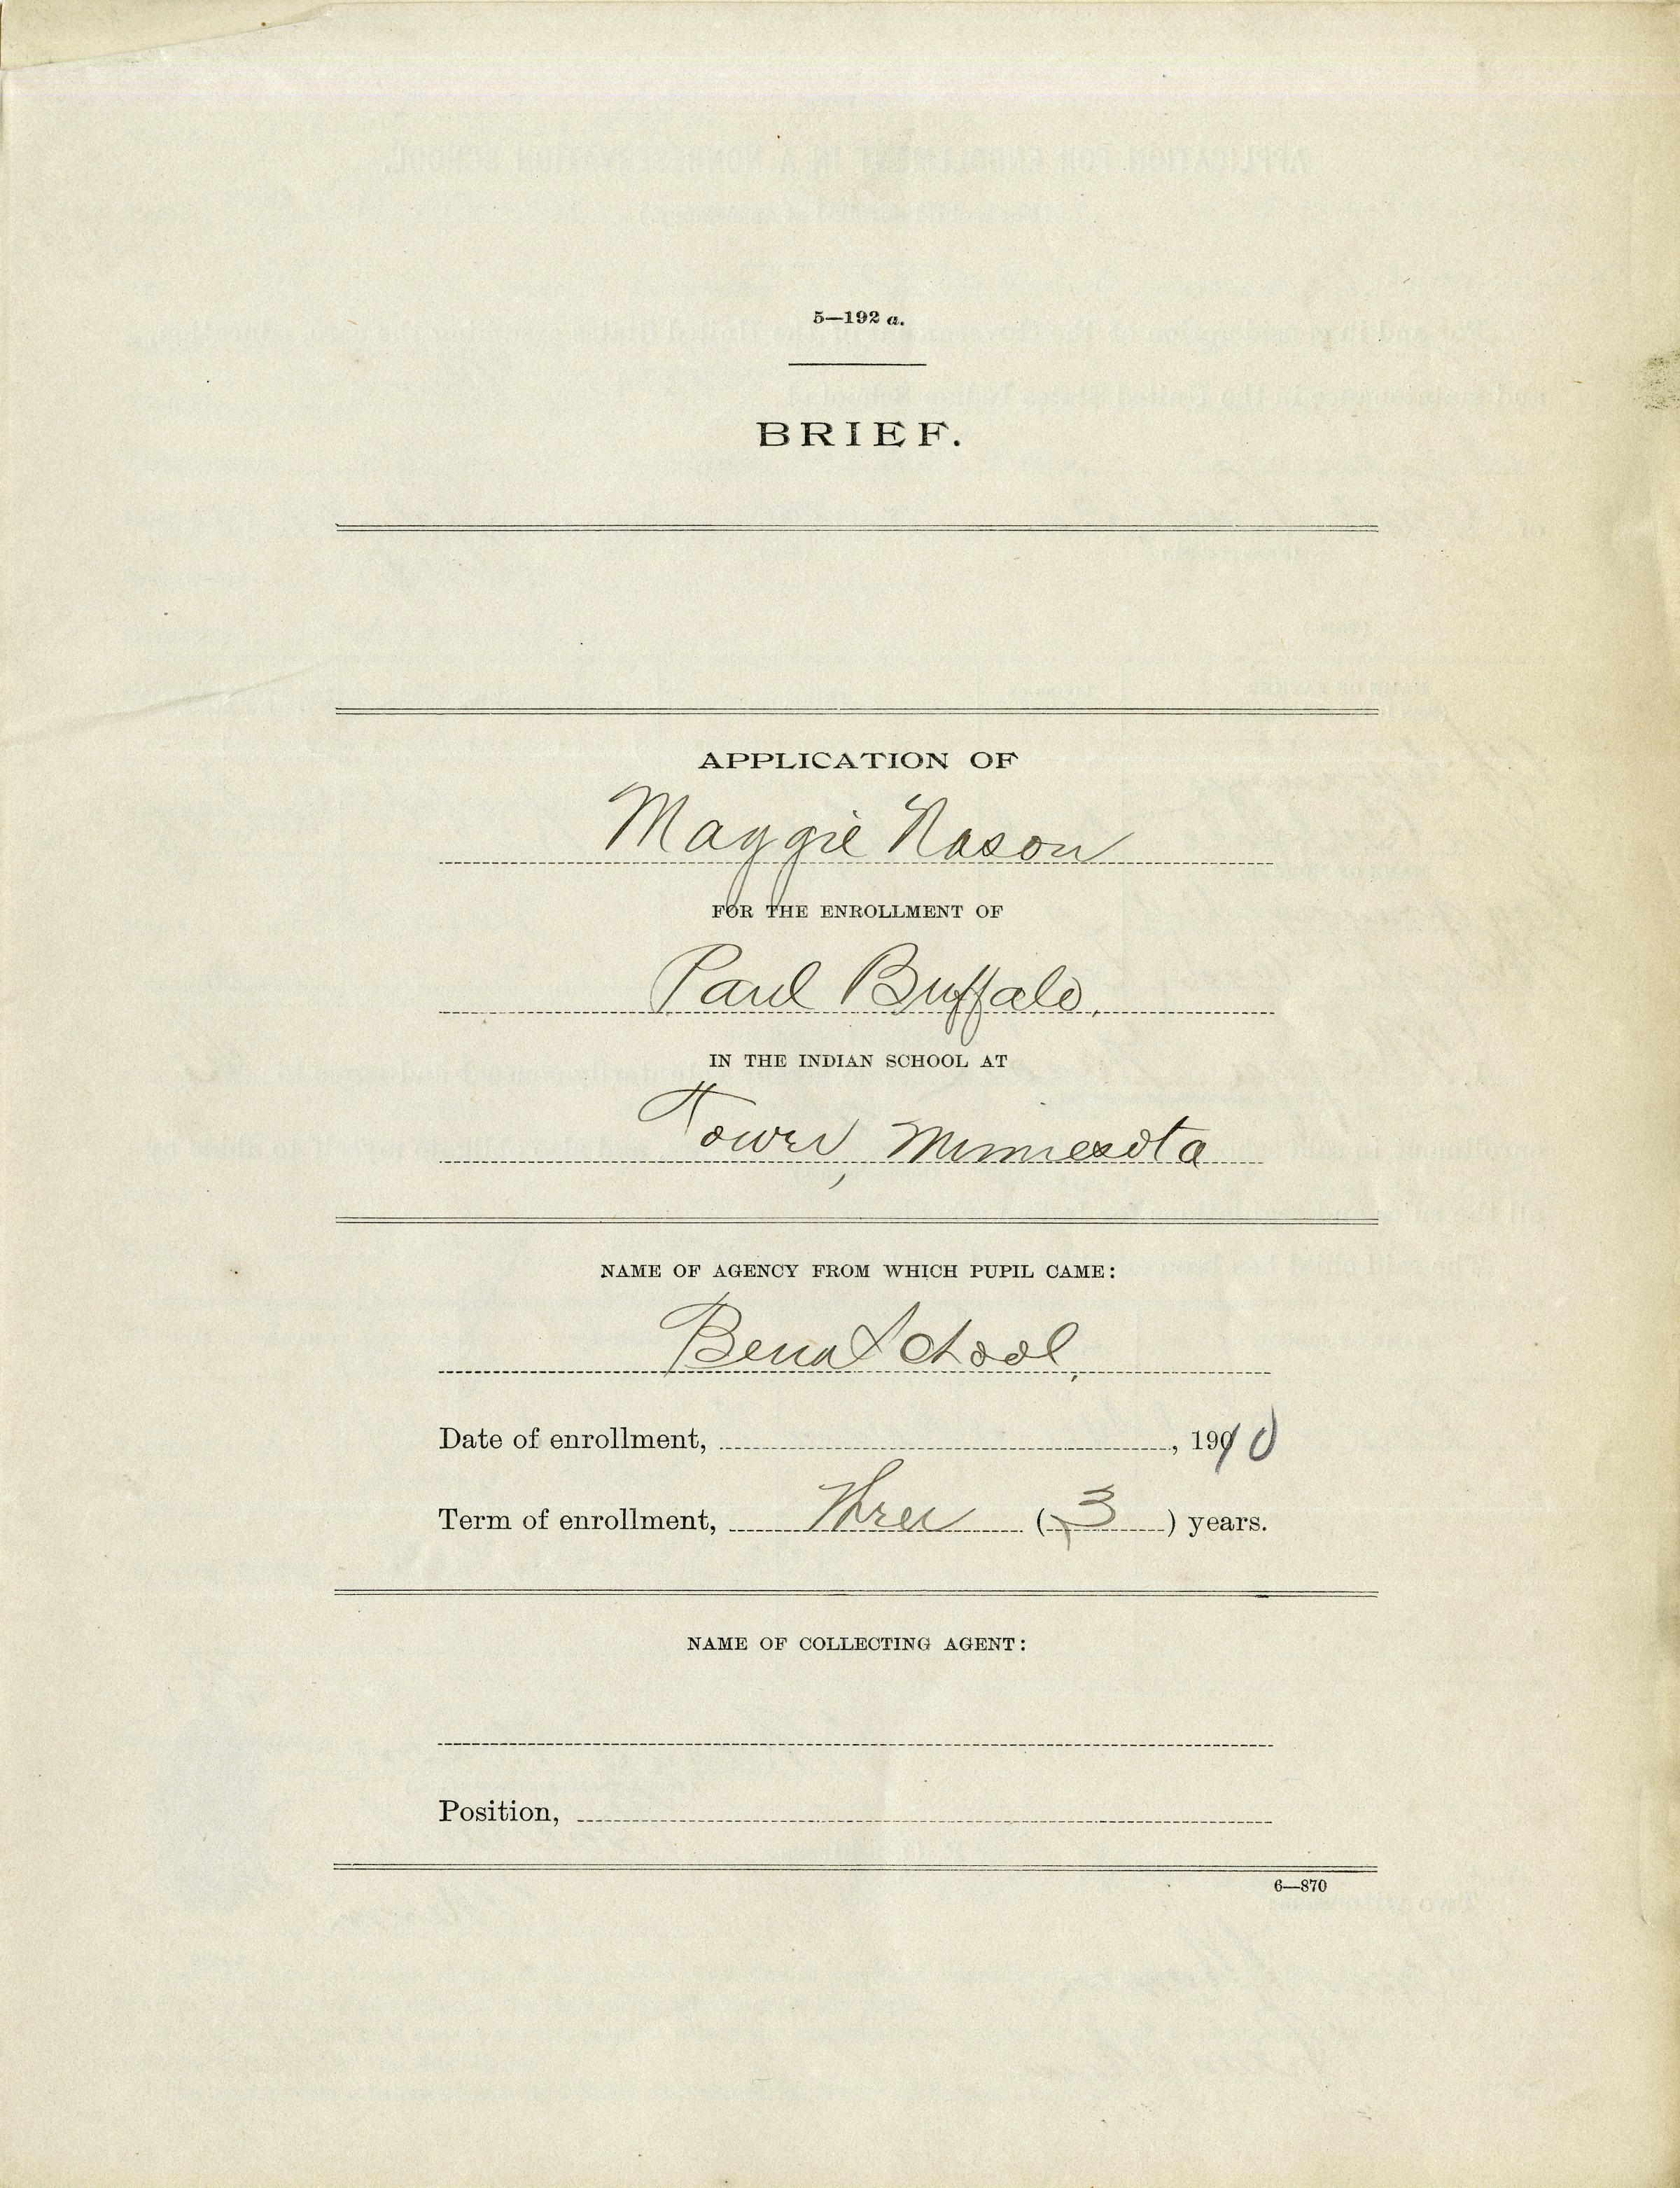 5—192 a.
BRIEF.
APPLICATION OF
Maggie Nason
FOR THE ENROLLMENT OF
Paul Buffalo,
IN THE INDIAN SCHOOL AT
Tower, Minnesota
NAME OF AGENCY FROM WHICH PUPIL CAME:
Bena School,
Date of enrollment, , 1910
Term of enrollment, Three (3) years.
NAME OF COLLECTING AGENT:
Position,
6—870